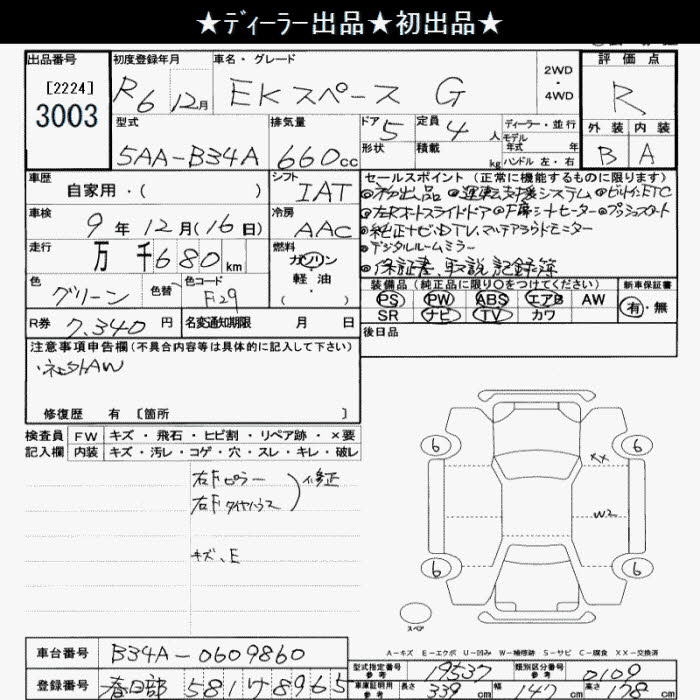 ★ディーラー出品★初出品★
出品番号 [2224] 3003
初度登録年月 R6 12月
車名・グレード EKスペース G
2WD・4WD
評価点 R
外装 B 内装 A
型式 5AA-B34A
排気量 660cc
ドア 5 形状
定員 4人 積載 kg
ディーラー・並行
モデル年式 年
ハンドル 左・右
車歴 自家用・( )
シフト IAT
車検 9年12月(16日)
冷房 AAC
走行 万千680km
燃料 ガソリン 軽油 ( ・ )
色 グリーン 色替 色コード
R券 7,340円
名変通知期限 月 日
セールスポイント (正常に機能するものに限ります)
◎初出品 ◎運転支援システム ◎ビルトインETC
◎左右オートスライドドア ◎F席シートヒーター ◎プッシュスタート
◎純正ナビ・DTV、マルチアラウンドモニター
◎デジタルルームミラー
◎保証書、取説、記録簿
装備品 (純正品に限り○をつけてください)
PS PW ABS エアB AW
SR ナビ TV カワ
新車保証書 有・無
後日品
注意事項申告欄(不具合内容等は具体的に記入して下さい)
修復歴 有 [箇所 ]
検査員 FW キズ・飛石・ヒビ割・リペア跡・×要
記入欄 内装 キズ・汚レ・コゲ・穴・スレ・キレ・破レ
右Fピラー
右Fタイヤハウス
修正
キズ、E
6 6
XX
W2
6 6
スペア
A-キズ E-エクボ U-凹み W-補修跡 S-サビ C-腐食 XX-交換済
車台番号 B34A-0609860
登録番号 春日部 581 け 8965
型式指定番号 参考 19537
類別区分番号 参考 0109
車庫証明用 参考 長さ 339cm 幅 147cm 高さ 178cm